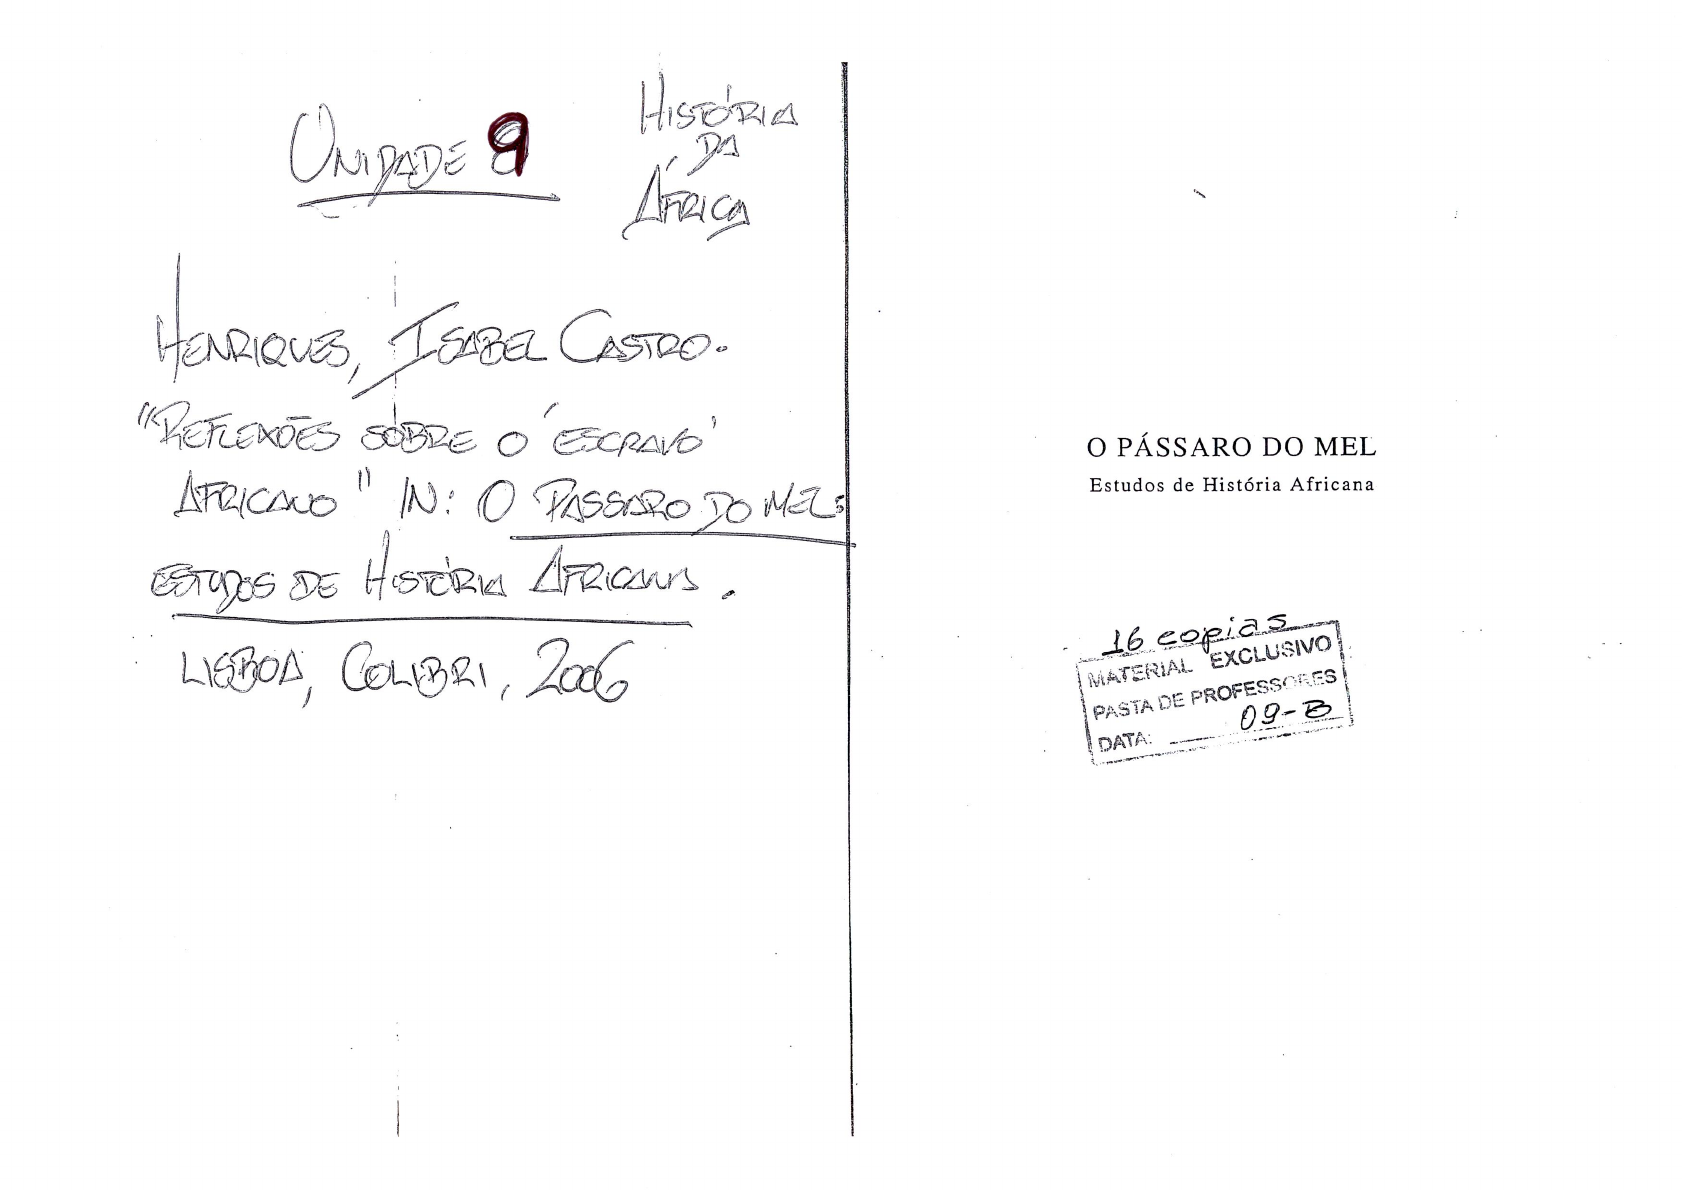 UNIDADE 9
HISTÓRIA
DA
ÁFRICA
HENRIQUES, ISABEL CASTRO.
"REFLEXÕES SOBRE O 'ESCRAVO'
AFRICANO" IN: O PASSARO DO MEL:
ESTUDOS DE HISTÓRIA AFRICANA.
LISBOA, COLIBRI, 2006
O PÁSSARO DO MEL
Estudos de História Africana
16 copias
MATERIAL EXCLUSIVO
PASTA DE PROFESSORES
09-B
DATA: